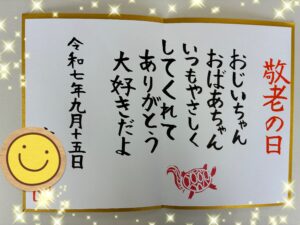 敬老の日
おじいちゃん
おばあちゃん
いつもやさしく
してくれて
ありがとう
大好きだよ
令和七年九月十五日